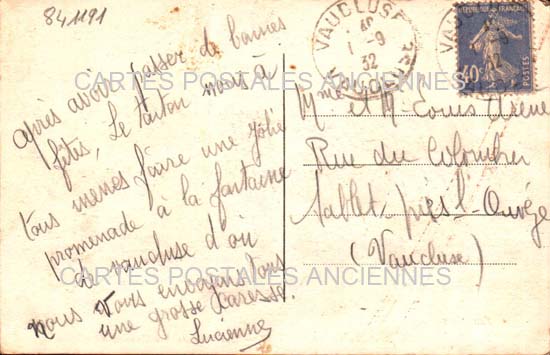 841191
Après avoir passer de bonnes
fêtes, Le tonton nous à
tous menes faire une jolie
promenade à la fontaine
de vaucluse d'où
nous Vous envoyons tous
une grosse Caresse.
Lucienne
VAUCLUSE
1 -9
32
VAUCLUSE
REPUBLIQUE FRANÇAISE
40c
POSTES
M et Mme Louis
Rue du Colombier
Sablet près l'Ouvèze
(Vaucluse)
CARTES POSTALES ANCIENNES
CARTES POSTALES ANCIENNES